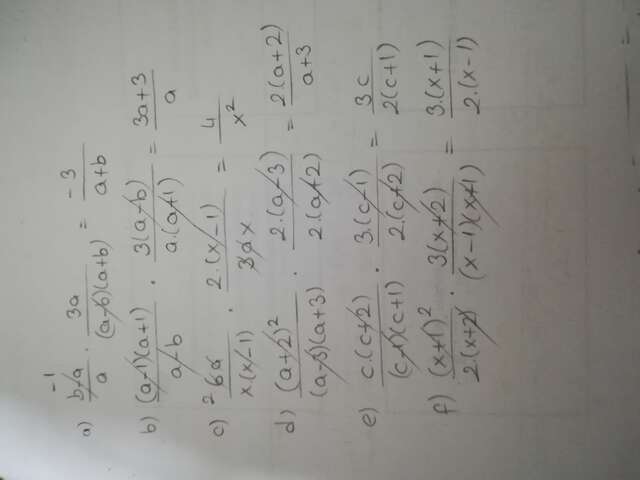 a) -1 b-a/a · 3a/(a-b)(a+b) = -3/a+b
b) (a-1)(a+1)/a-b · 3(a-b)/a.(a+1) = 3a+3/a
c) 2 6a/x.(x-1) · 2.(x-1)/3ax = 4/x²
d) (a+2)²/(a-3)(a+3) · 2.(a-3)/2(a+2) = 2.(a+2)/a+3
e) c.(c+2)/(c-1)(c+1) · 3.(c-1)/2.(c+2) = 3c/2(c+1)
f) (x+1)²/2.(x+2) · 3(x+2)/(x-1)(x+1) = 3.(x+1)/2.(x-1)